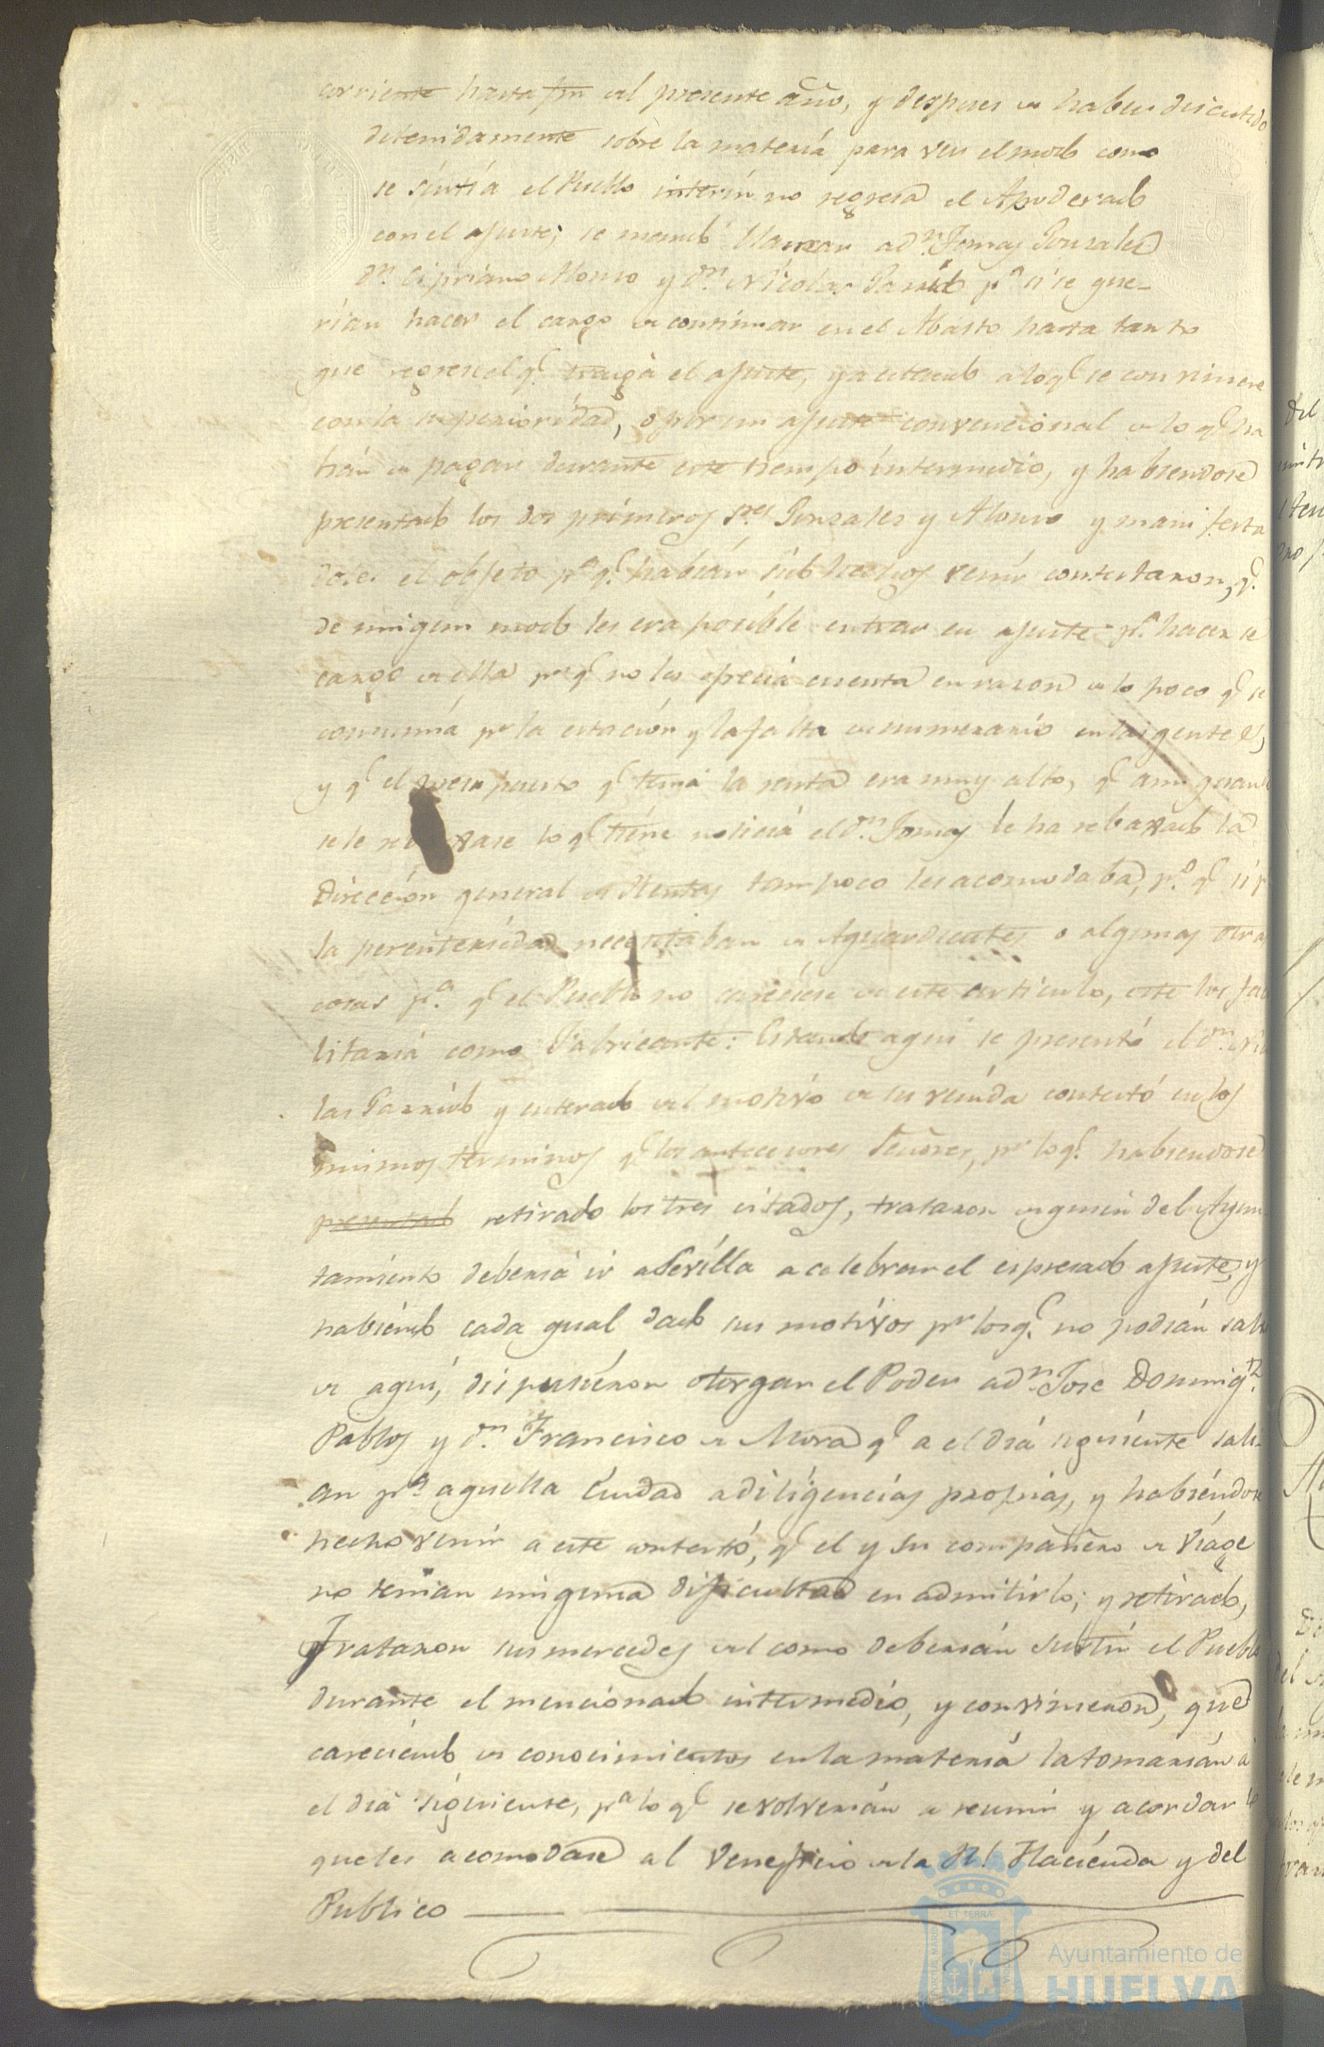 corriente hasta fin del presente año, y despues de haber discutido
detenidamente sobre la materia para ver el modo como
se surtia el Pueblo interin no regresa el Apoderado
con el ajuste; se mandó llamar a Dn. Tomas Gonzalez
Dn. Cipriano Alonso y Dn. Nicolas Garrido pa. si se que-
rian hacer el cargo de continuar en el Abasto hasta tanto
que regrese el q. traiga el ajuste, ya estando a lo q. se conviniere
con la superioridad, o por un ajuste convencional de lo q. ha
bian de pagar durante este tiempo intermedio, y habiendose
presentado los dos primeros Sres. Gonzales y Alonso y manifesta
doles el objeto pa. q. habian sido hechos venir contestaron, q.
de ningun modo les era posible entrar en ajuste pa. hacerse
cargo de ella pr. q. no les ofrecia cuenta en razon de lo poco q. se
consumia pr. la estacion y la falta de numerario en las gentes,
y q. el presupuesto q. tenia la renta era muy alto, q. aun quando
se le rebaxase lo q. tiene noticia el Dn. Tomas le ha rebaxado la
Direccion general de Rentas tampoco les acomodaba, po. q. si p
la perenteriedad necesitaban de Aguardientes o algunas otras
cosas pa. q. el Pueblo no careciese de este articulo, este los fa
litaria como Fabricante: Estando aqui se presentó el Dn. Nico
las Garrido y enterado del motivo de su venida contestó en los
mismos terminos q. los antecesores Señores, pr. lo q. habiendose
presentado retirado los tres citados, trataron de quien del Ayun
tamiento deberia ir a Sevilla a celebrar el espresado ajuste, y
habiendo cada qual dado sus motivos pr. los q. no podian salir
de aqui, dispusieron otorgar el Poder a Dn. Jose Doming.z
Pablos y Dn. Francisco de Mora q. a el dia siguiente sali-
an pa. aquella Ciudad a diligencias propias, y habiendose
hecho venir a este contestó, q. el y su compañero de Viage
no tenian ninguna dificultad en admitirlo; y retirado,
Trataron sus mercedes del como deberian surtir el Pueblo
durante el mencionado intermedio, y convinieron, que
careciendo de conocimientos en la materia la tomarian a
el dia siguiente, pa. lo q. se volverian a reunir y acordar lo
que les acomodase al veneficio de la Rl. Hacienda y del
Publico
Ayuntamiento de
HUELVA